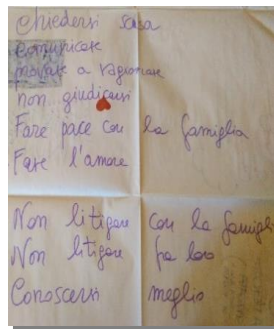 chiedersi scusa
comunicare
provare a ragionare
non giudicarsi
Fare pace con la famiglia
Fare l'amore
Non litigare con la famiglia
Non litigare fra loro
Conoscersi meglio